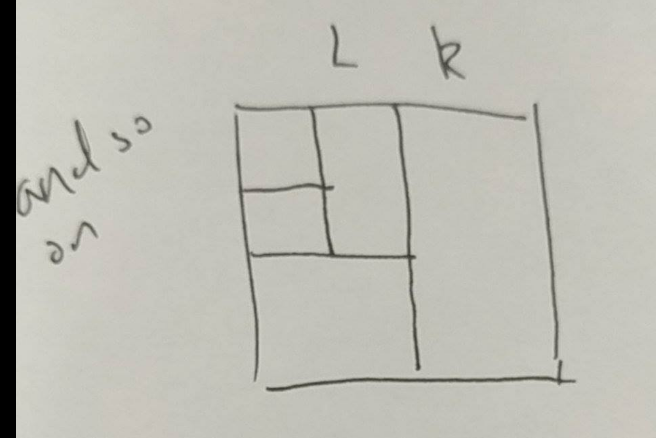 L k
and so
on